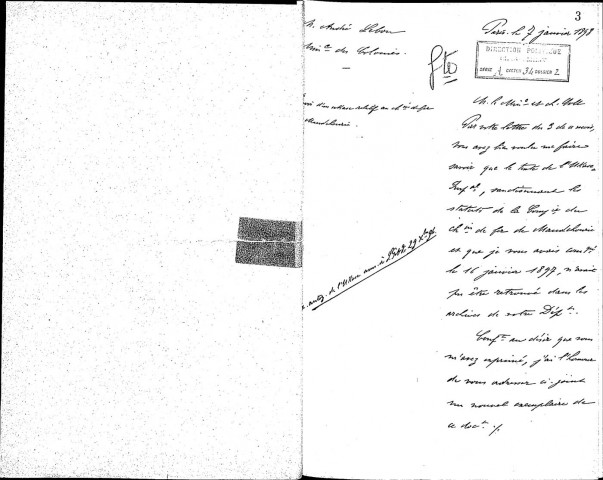 3
M. André Lebon
Min^re des Colonies
Paris, le 7 janvier 1898
DIRECTION POLITIQUE
SÉRIE A CARTON 34 DOSSIER 2
M. le Min^re et ch. Coll.
Par votre lettre du 3 de ce mois,
vous avez bien voulu me faire
savoir que le texte de l'Ukase
Imp^al, sanctionnant les
statuts de la Comp^ie du
ch^in de fer de Mandchourie
et que je vous avais com^é
le 16 janvier 1897, n'avait
pu être retrouvé dans les
archives de votre Dép^t.
Conf^t au désir que vous
m'avez exprimé, j'ai l'honneur
de vous adresser ci-joint
un nouvel exemplaire de
ce doc^t ./.
d'un ukase relatif au ch^in de fer
Mandchourie
de l'Ukase ann. à 29 X^bre 96